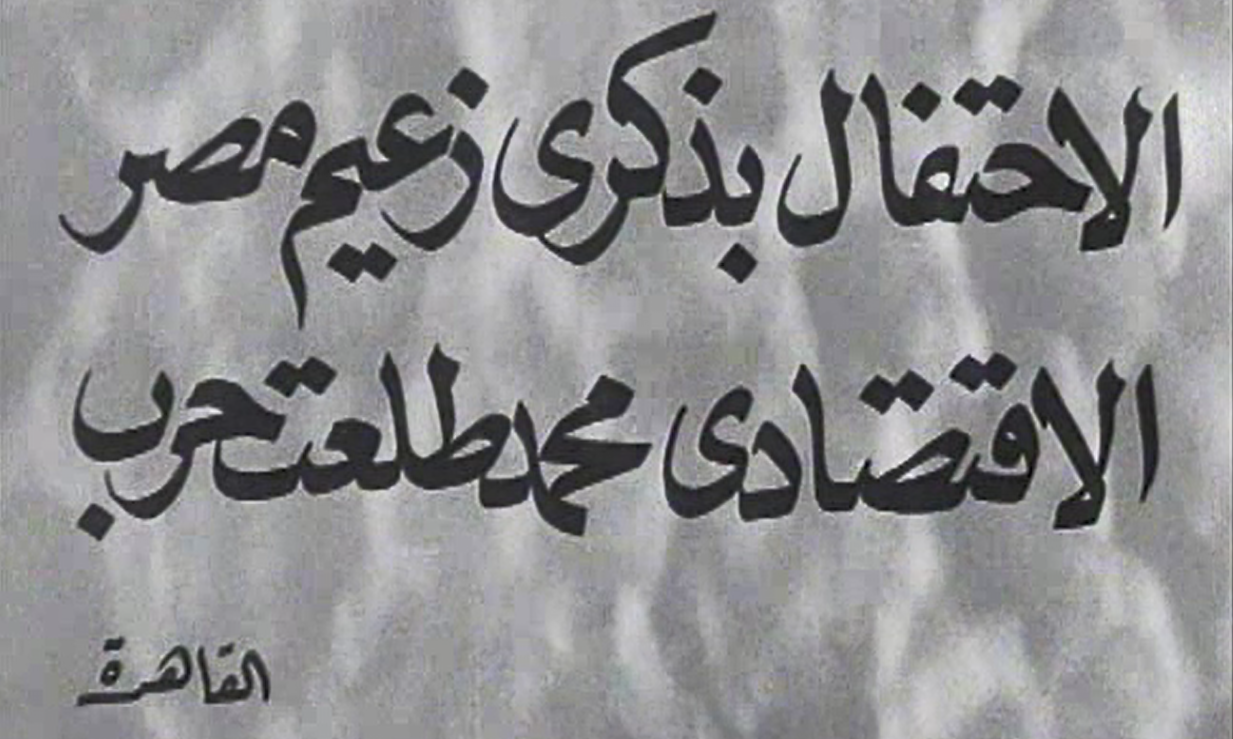 الاحتفال بذكرى زعيم مصر
الاقتصادى محمد طلعت حرب
القاهرة